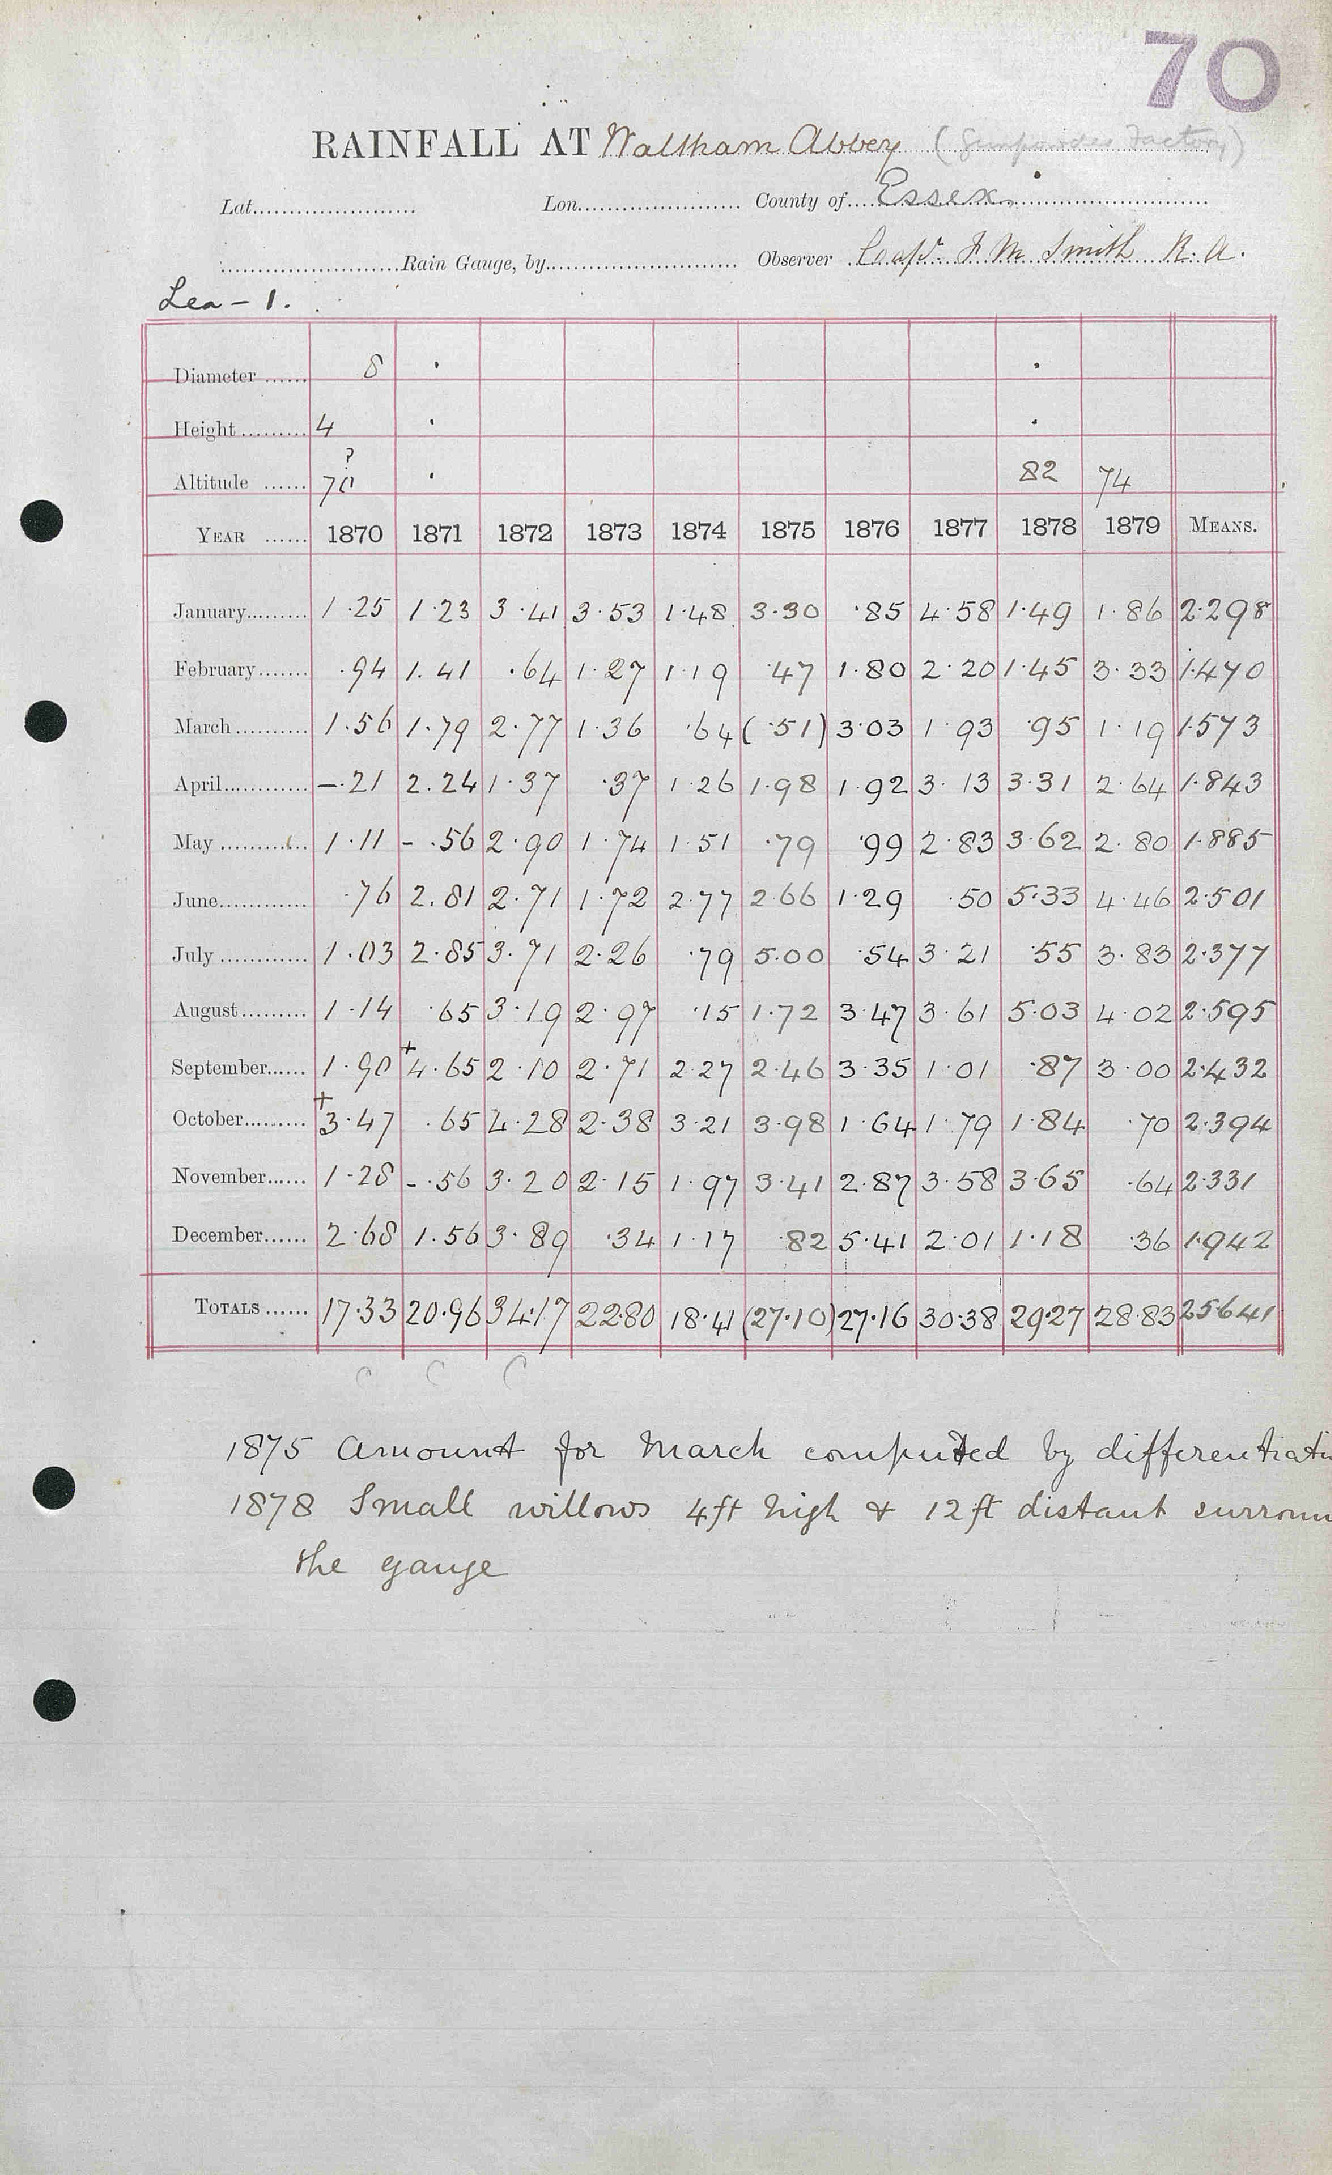 70
RAINFALL AT Waltham Abbey (Gunpowder Factory)
Lat. Lon. County of Essex.
Rain Gauge, by Observer Capt. J M Smith R.A.
Lea - 1.
Diameter 8 · ·
Height 4 · ·
?
Altitude 70 · 82 74
YEAR 1870 1871 1872 1873 1874 1875 1876 1877 1878 1879 MEANS.
January 1·25 1·23 3·41 3·53 1·48 3·30 ·85 4·58 1·49 1·86 2·298
February ·94 1.41 ·64 1·27 1·19 ·47 1·80 2·20 1·45 3·33 1·470
March 1·56 1·79 2·77 1·36 ·64 (·51) 3·03 1·93 ·95 1·19 1·573
April –·21 2.24 1·37 ·37 1·26 1·98 1·92 3·13 3·31 2·64 1·843
May 1·11 -·56 2·90 1·74 1·51 ·79 ·99 2·83 3·62 2·80 1·885
June ·76 2.81 2·71 1·72 2·77 2·66 1·29 ·50 5·33 4·46 2·501
July 1·03 2·85 3·71 2·26 ·79 5·00 ·54 3·21 ·55 3·83 2·377
August 1·14 ·65 3·19 2·97 ·15 1·72 3·47 3·61 5·03 4·02 2·595
September 1·90 +4·65 2·10 2·71 2·27 2·46 3·35 1·01 ·87 3·00 2·432
October +3·47 ·65 4·28 2·38 3·21 3·98 1·64 1·79 1·84 ·70 2·394
November 1·28 -·56 3·20 2·15 1·97 3·41 2·87 3·58 3·65 ·64 2·331
December 2·68 1·56 3·89 ·34 1·17 ·82 5·41 2·01 1·18 ·36 1·942
TOTALS 17·33 20·96 34·17 22·80 18·41 (27·10) 27·16 30·38 29·27 28·83 25·641
C C C
1875 Amount for March computed by differentiati
1878 Small willows 4ft high & 12ft distant surroun
the gauge